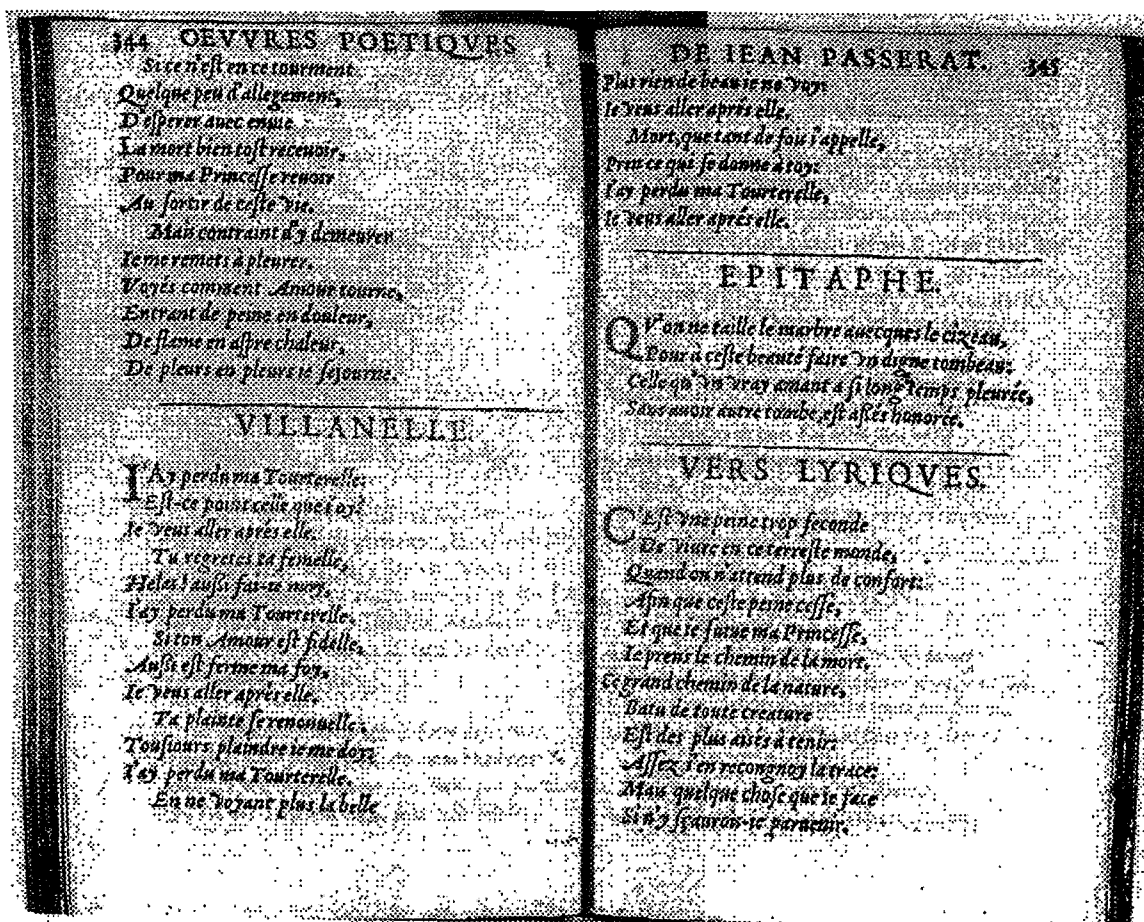 344 OEVVRES POETIQVES
Si ce n'est en ce tourment
Quelque peu d'allegement,
D'esperer auec enuie
La mort bien tost receuoir,
Pour ma Princesse reuoir
Au sortir de ceste vie.
Mais contraint d'y demeurer
Ie me remets à pleurer.
Voyés comment Amour tourne,
Entrant de peine en douleur,
De flame en aspre chaleur,
De pleurs en pleurs ie sejourne.
VILLANELLE.
I'Ay perdu ma Tourterelle:
Est-ce point celle que i'oy?
Ie veus aller aprés elle.
Tu regretes ta femelle,
Helas! aussi fai-ie moy,
I'ay perdu ma Tourterelle.
Si ton Amour est fidelle,
Aussi est ferme ma foy,
Ie veus aller aprés elle.
Ta plainte se renouuelle;
Tousiours plaindre ie me doy:
I'ay perdu ma Tourterelle.
En ne voyant plus la belle
DE IEAN PASSERAT. 345
Plus rien de beau ie ne voy:
Ie veus aller aprés elle.
Mort, que tant de fois i'appelle,
Prin ce que se donne à toy:
I'ay perdu ma Tourterelle,
Ie veus aller aprés elle.
EPITAPHE.
QV'on ne taille le marbre auecques le cizeau,
Pour à ceste beauté faire vn digne tombeau:
Celle qu'vn vray amant a si long temps pleurée,
Sans auoir autre tombe, est assés honorée.
VERS LYRIQVES.
C'Est vne peine trop feconde
De viure en ce terrestre monde,
Quand on n'attend plus de confort:
Afin que ceste peine cesse,
Et que ie suiue ma Princesse,
Ie prens le chemin de la mort.
Ce grand chemin de la nature,
Batu de toute creature
Est des plus aisés à tenir:
Assez i'en recongnoy la trace:
Mais quelque chose que ie face
Si n'y sçaurois-ie paruenir.